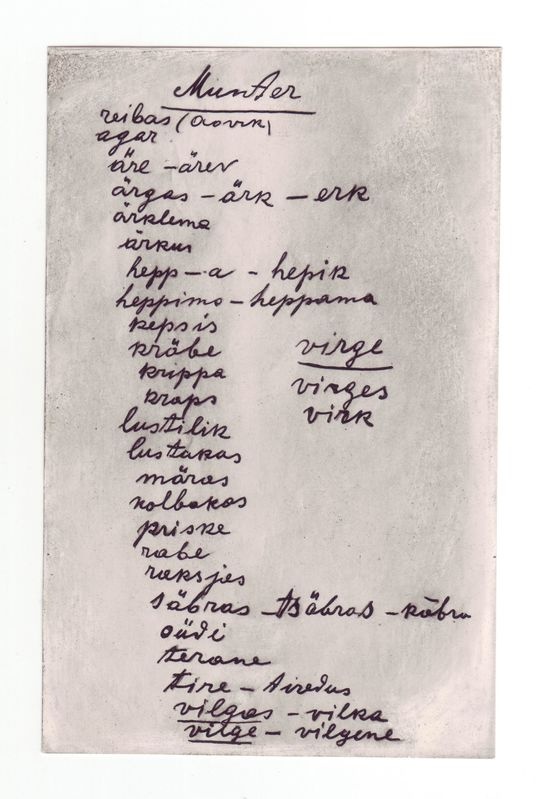 Munter
reibas (Aavik)
agar
äre - ärev
ärgas - ärk - erk
ärklema
ärkus
hepp - a - hepik
heppimo - heppama
kepsis
kräbe
krippa
kraps
virge
virges
virk
lustilik
lustakas
märas
nolbakas
priske
rabe
raksjes
säbras - tsäbras - käbra
südi
terane
tire - tiredus
vilgas - vilka
vilge - vilgene